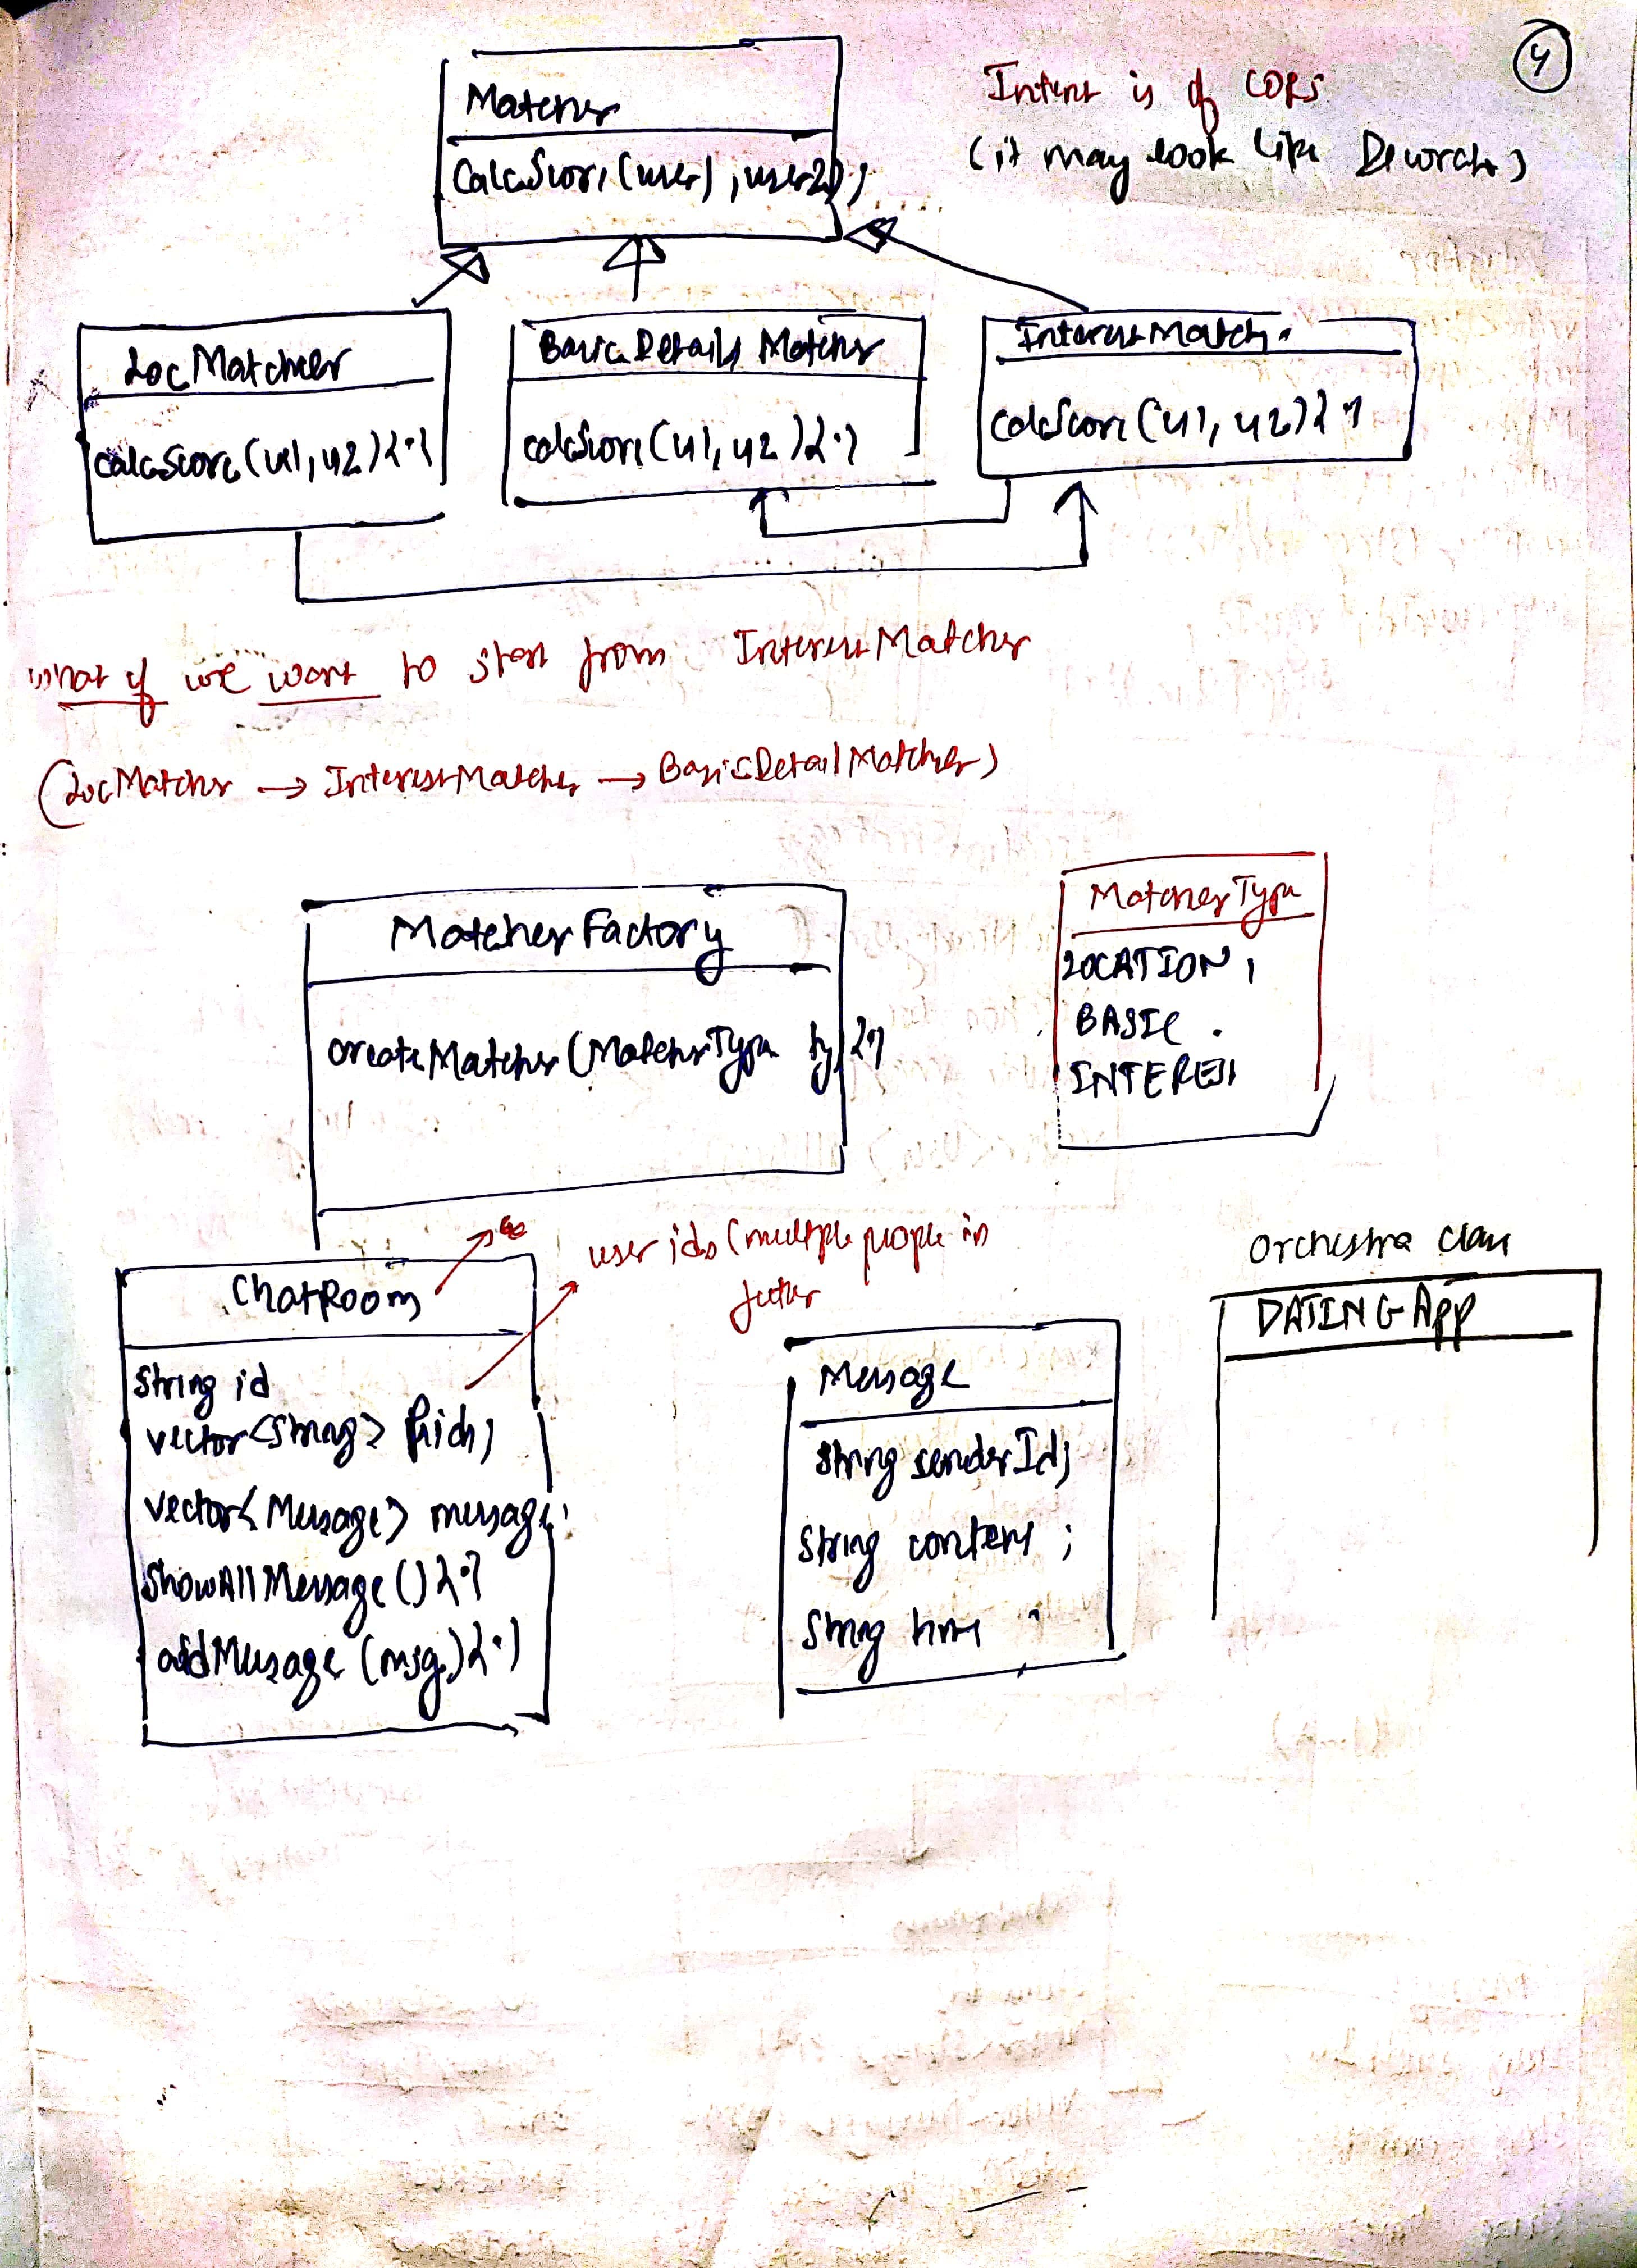 4
Matcher
CalcScore(user1, user2);
Intent is of CORS
(it may look like Decorator)
LocMatcher
calcScore(u1, u2){.}
BasicDetails Matcher
calcScore(u1, u2){.}
InterestMatch.
calcScore(u1, u2){.}
what if we want to start from InterestMatcher
(LocMatcher → InterestMatcher → BasicDetailMatcher)
MatcherFactory
createMatcher(MatcherType ty){.}
MatcherType
LOCATION,
BASIC.
INTEREST
user ids (multiple people in
future
ChatRoom
String id
vector<String>
vector<Message> message;
ShowAllMessage(){.}
addMessage(msg){.}
Message
String senderId;
String content;
String time;
Orchestra class
DATING App